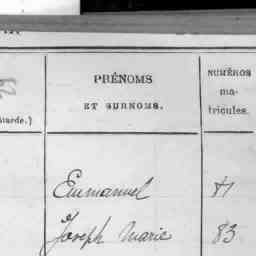 PRÉNOMS
ET SURNOMS.
NUMÉROS
ma-
tricules.
Garde.)
Emmanuel
Joseph Marie 83